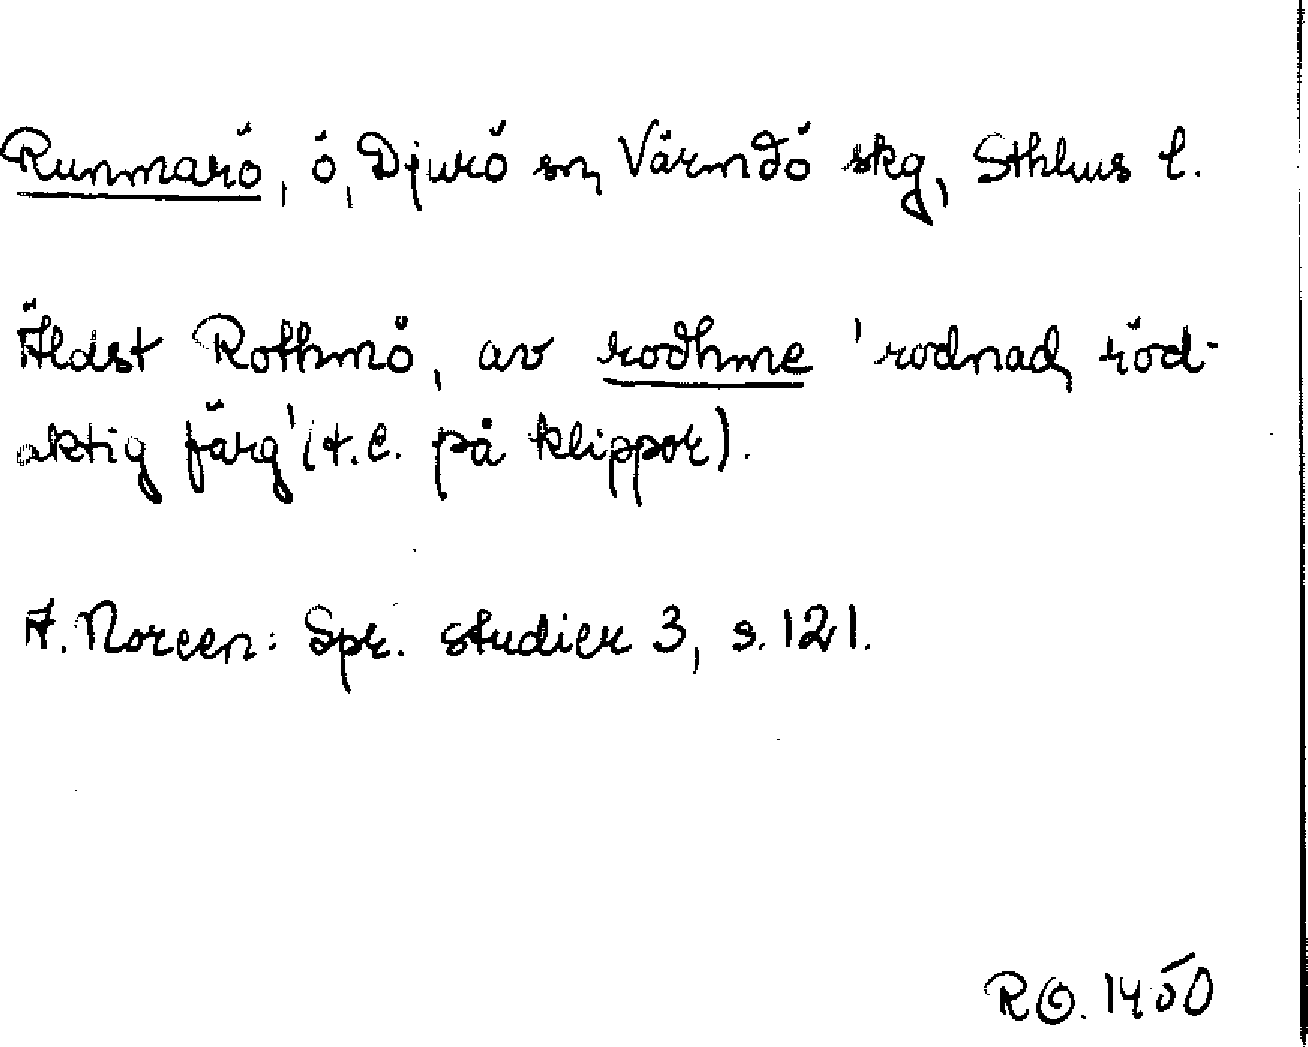 Runmarö, ö, Djurö sn, Värmdö skg, Sthlms l.
Äldst Rothmö, av rodhme 'rodnad, röd-
aktig färg' (t.e. på klippor).
A. Noreen: Spr. studier 3, s. 121.
RO. 1450